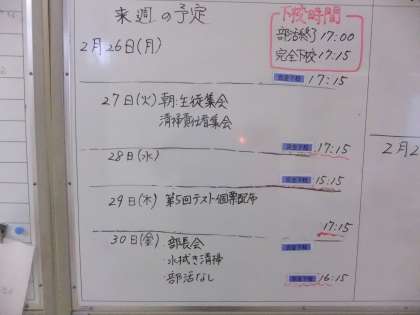 来週の予定
下校時間
部活終了 17:00
完全下校 17:15
2月26日(月)
完全下校 17:15
27日(火) 朝:生徒集会
清掃責任者集会
完全下校 17:15
28日(水)
完全下校 15:15
29日(木) 第5回テスト個票配布
17:15
30日(金) 部長会
・水拭き清掃
・部活なし
完全下校
完全下校 16:15
2月2